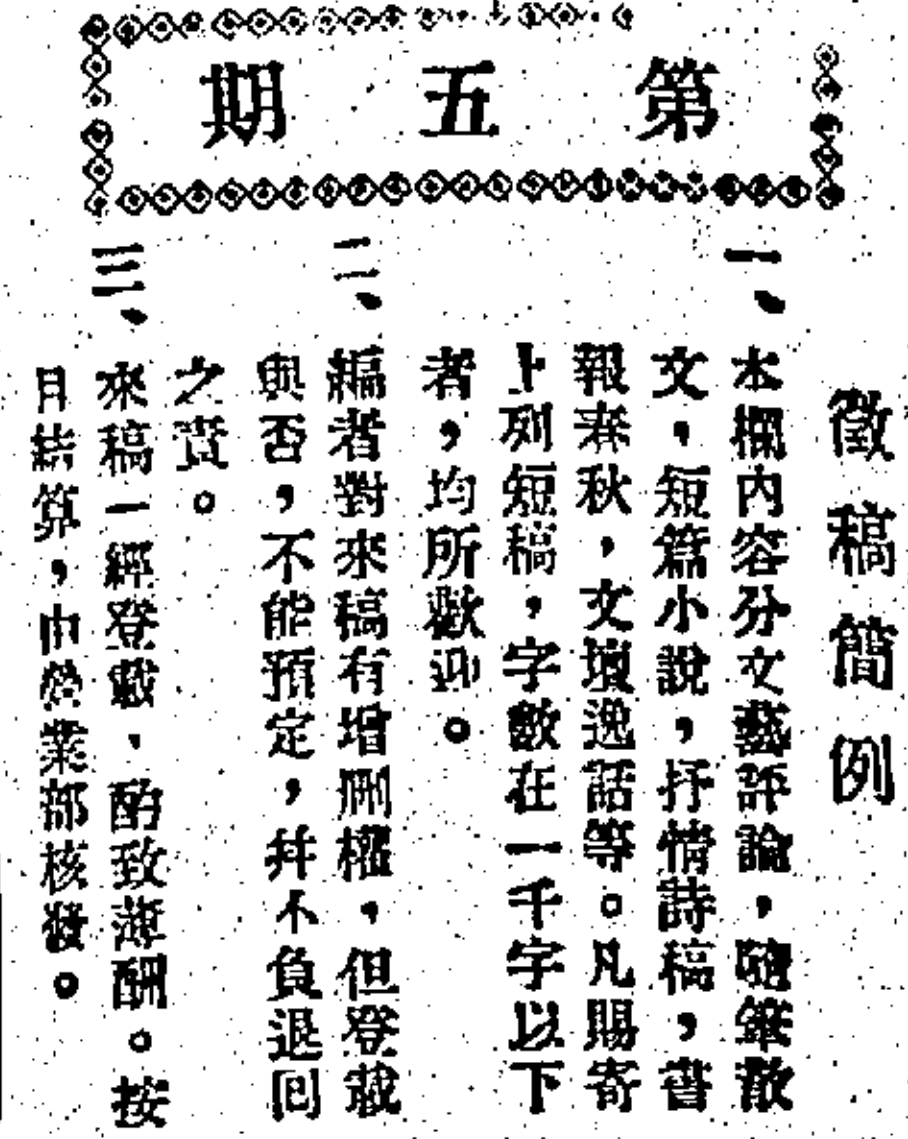 第五期
徵稿簡例
一、本欄內容分文藝評論，隨筆散
文，短篇小說，抒情詩稿，書
報春秋，文壇逸話等。凡賜寄
上列短稿，字數在一千字以下
者，均所歡迎。
二、編者對來稿有增刪權，但登載
與否，不能預定，幷不負退回
之責。
三、來稿一經登載，酌致薄酬。按
月結算，由營業部核發。